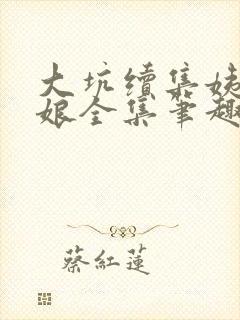 大坑續集姊
娘全集筆趣
蔡紅蓮